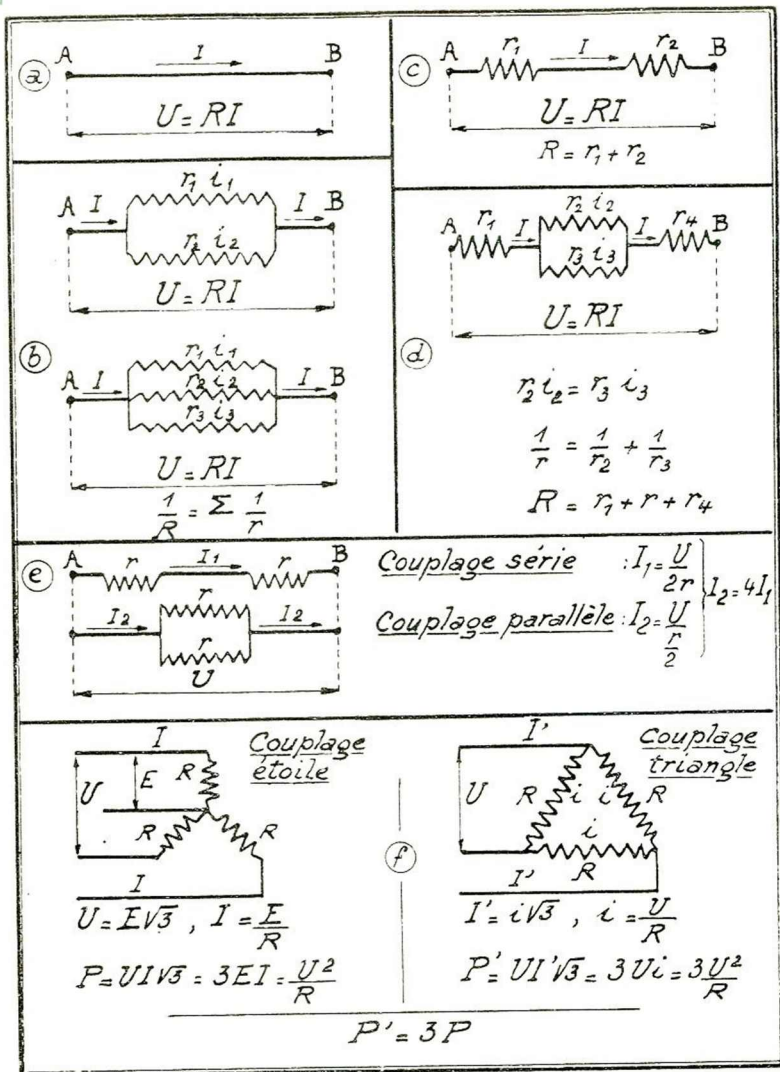 a
A I B
U = RI
b
A I r₁ i₁ I B
r₂ i₂
U = RI
A I r₁ i₁ I B
r₂ i₂
r₃ i₃
U = RI
1/R = Σ 1/r
c
A r₁ I r₂ B
U = RI
R = r₁ + r₂
d
A r₁ I r₂ i₂ I r₄ B
r₃ i₃
U = RI
r₂ i₂ = r₃ i₃
1/r = 1/r₂ + 1/r₃
R = r₁ + r + r₄
e
A r I₁ r B
I₂ r I₂
r
U
Couplage série : I₁ = U/2r
Couplage parallèle : I₂ = U/(r/2)
} I₂ = 4I₁
f
Couplage
étoile
I
U E R
R R
I
U = E√3 , I = E/R
P = UI√3 = 3EI = U²/R
Couplage
triangle
I'
U R i i R
i
R
I'
I' = i√3 , i = U/R
P' = UI'√3 = 3Ui = 3U²/R
P' = 3P